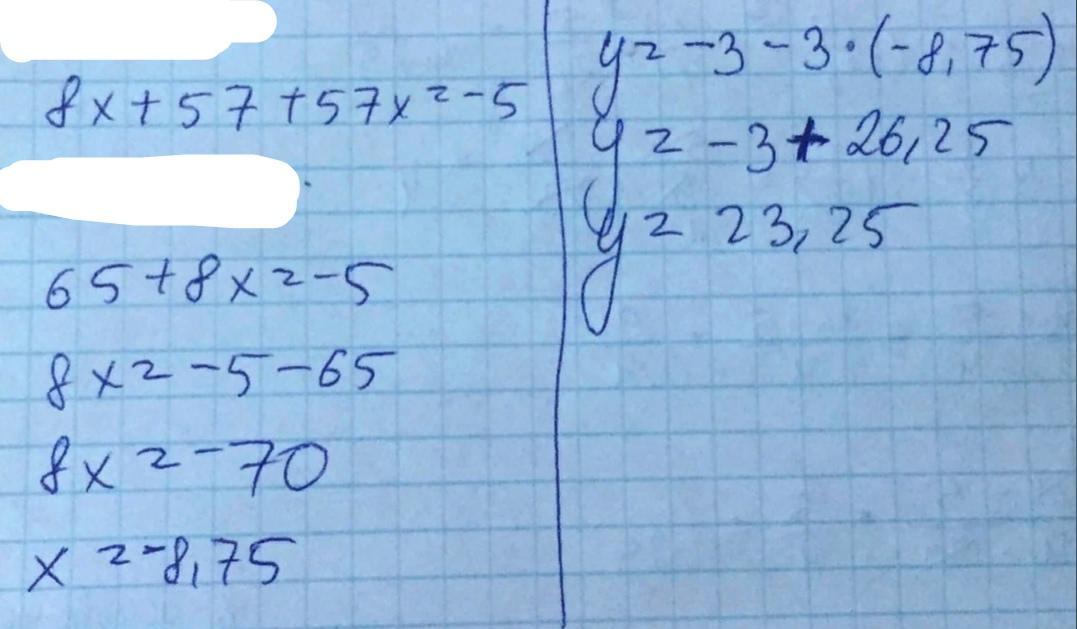 8x+57+57x=-5
65+8x=-5
8x=-5-65
8x=-70
x=-8,75
y=-3-3·(-8,75)
y=-3+26,25
y=23,25